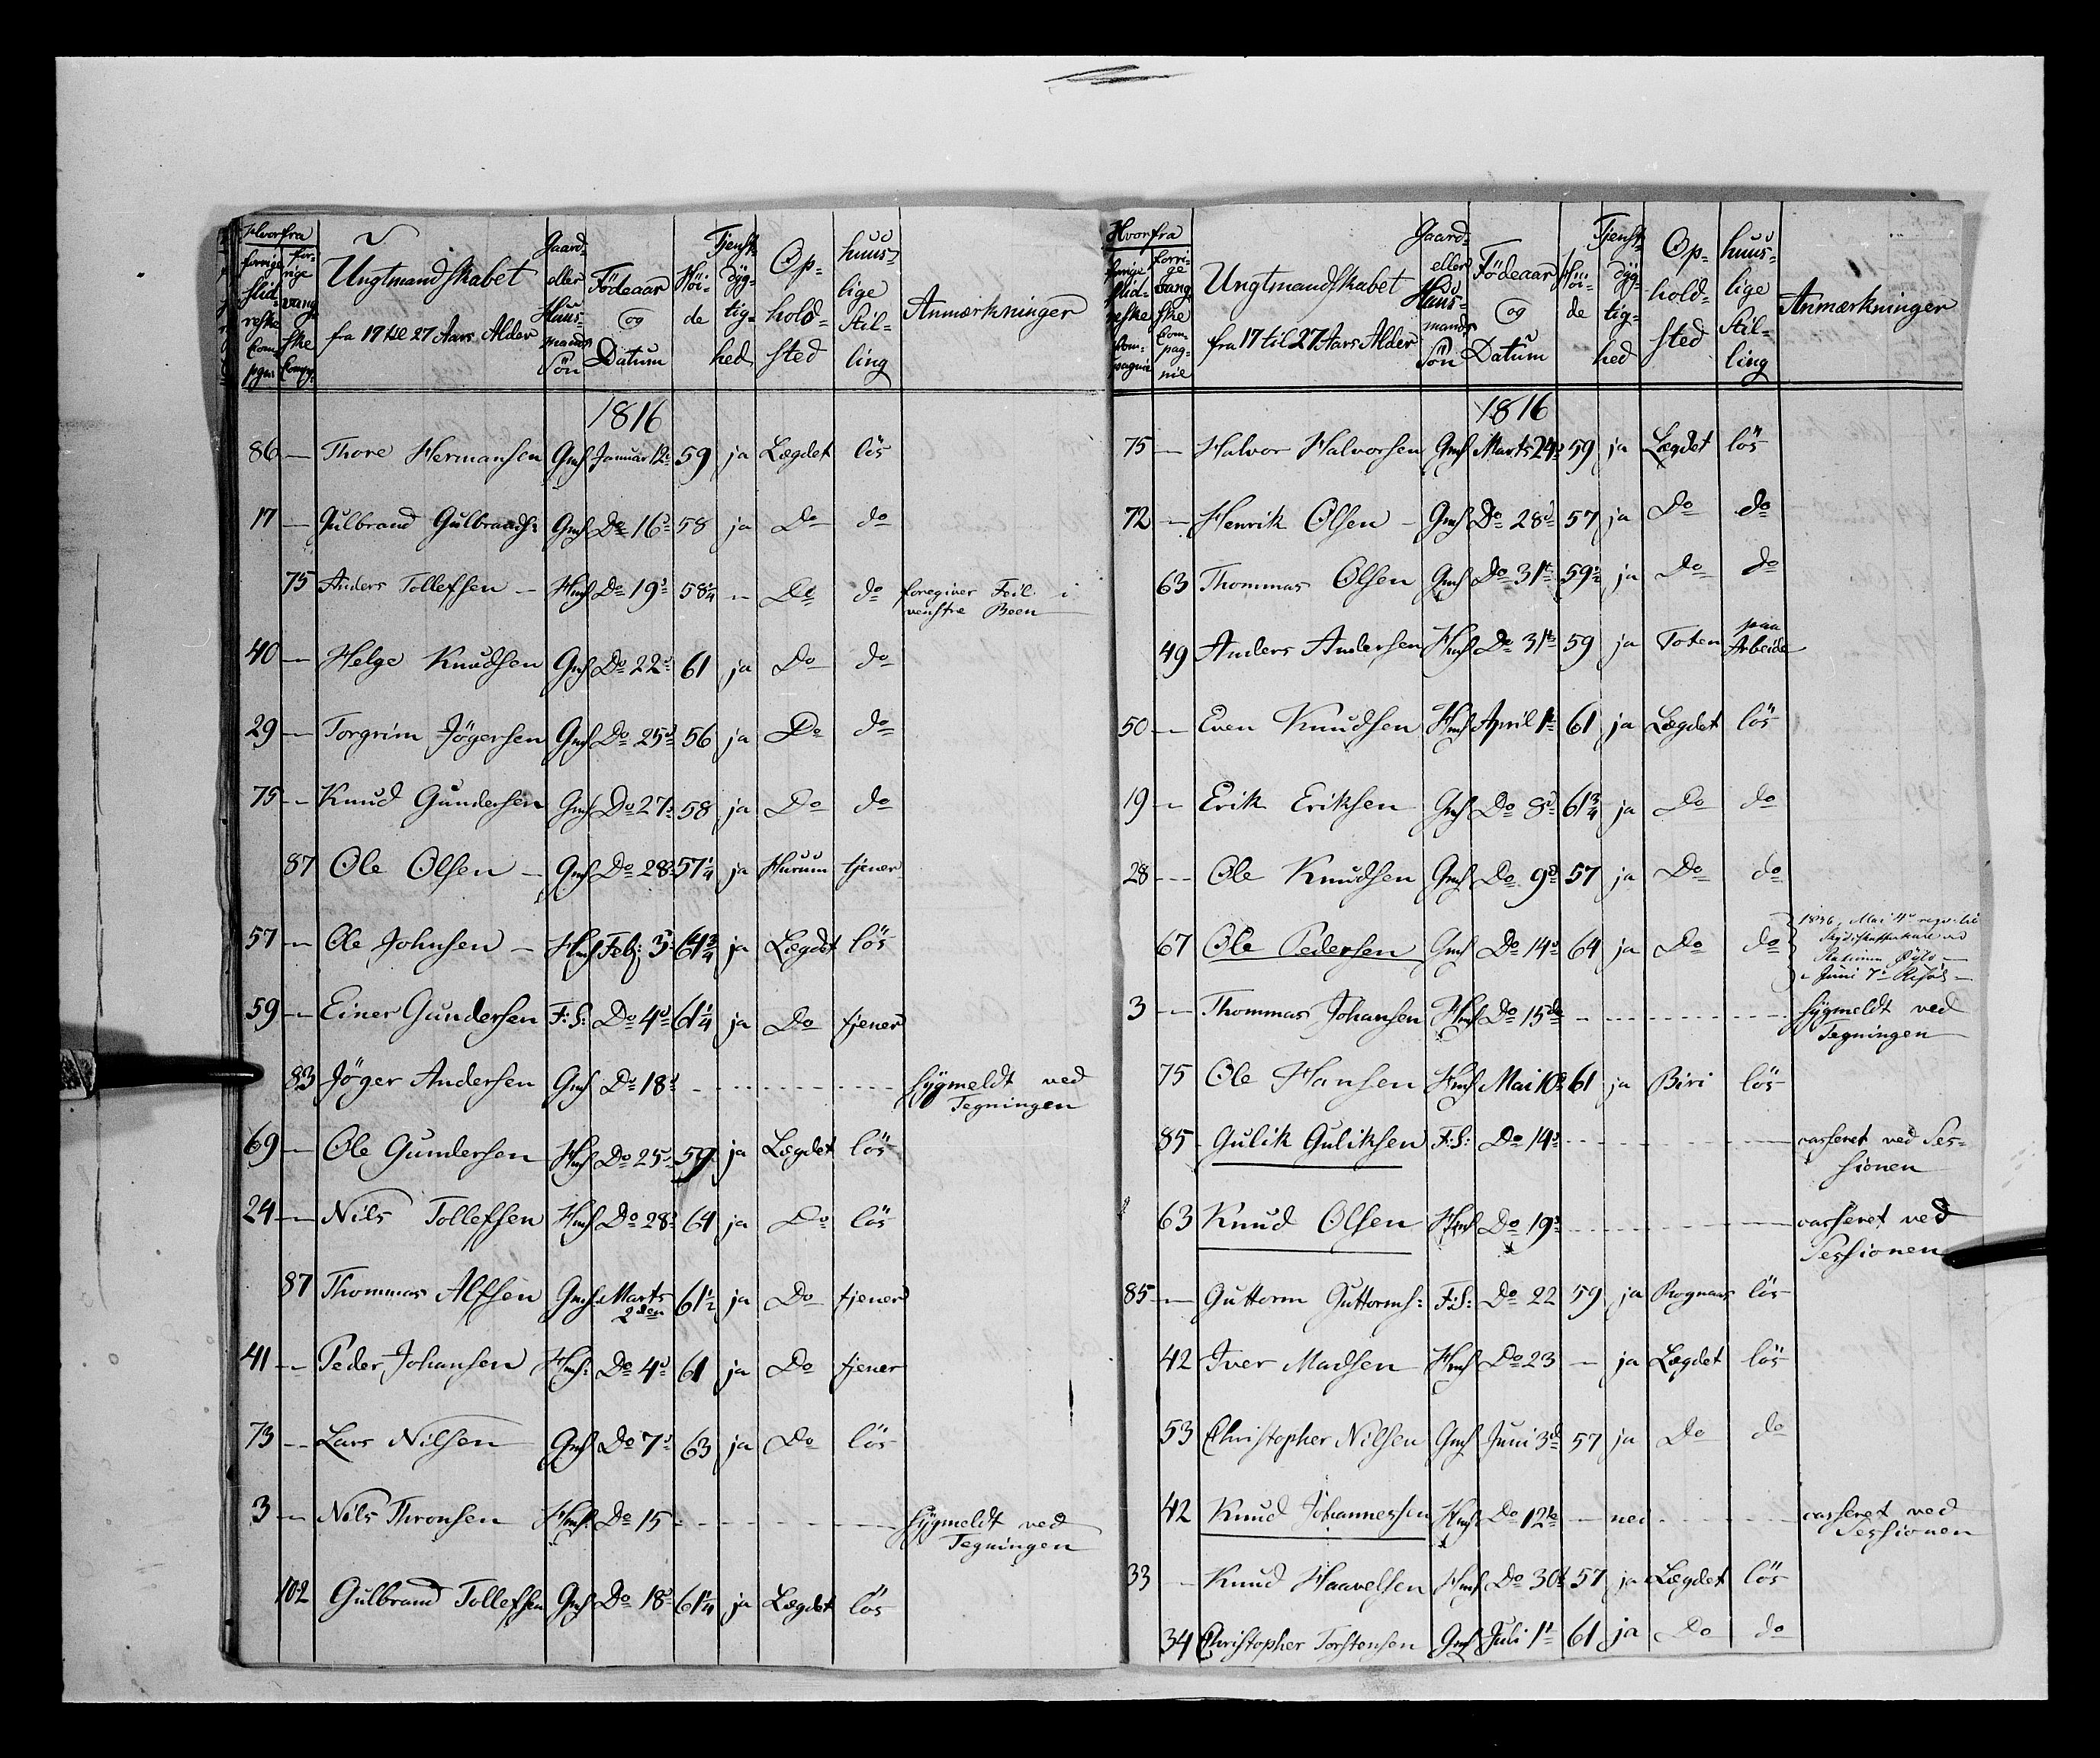 Hvorfra
forrige Slidreske Compgnie
forrige Vangske Compg:
Ungtmandskabet
fra 17 til 27 Aars Alder
Gaard- eller Huusmands Sön
Födeaar og Datum
Höide
Tjenstdygtighed
Opholdsted
huuslige Stilling
Anmærkninger
1816
86 — Thore Hermansen Gms Januar 12te 59 ja Lægdet lös
17 — Gulbrand Gulbrands: Gms Do 16d 58 ja Do do
75 Anders Tollefsen — Hms Do 19d 58¼ — Do do foregiver Feil i
venstre Been
40 — Helge Knudsen Gms Do 22d 61 ja Do do
29 — Torgrim Jögersen Gms Do 25d 56 ja Do do
75 — Knud Gundersen Gms Do 27d 58 ja Do do
87 Ole Olsen — Gms Do 28d 57¼ ja Hurum tjener
57 — Ole Johnsen — Hms Feb: 3d 64¾ ja Lægdet lös
59 — Einer Gundersen F:S: Do 4d 61¼ ja Do tjener
83 Jöger Andersen Gms Do 18d - - - - - Sygmeldt ved
Tegningen
69 — Ole Gundersen Hms Do 25d 59 ja Lægdet lös
24 — Nils Tollefsen Hms Do 28d 64 ja Do lös
87 Thommas Alfsen Gms Marts 2den 61½ ja Do tjener
41 — Peder Johansen Hms: Do 4d 61 ja Do tjener
73 — Lars Nilsen Gms Do 7d 63 ja Do lös
3 — Nils Thronsen Hms: Do 15 - - - - - Sygmeldt ved
Tegningen
102 Gulbrand Tollefsen Gms Do 18d 61¼ ja Lægdet lös
Hvorfra
forrige Slidreske Compagnie
forrige Vangske Compagnie
Ungtmandskabet
fra 17 til 27 Aars Alder
Gaard- eller Huusmands Sön
Födeaar og Datum
Höide
Tjenstdygtighed
Opholdsted
huuslige Stilling
Anmærkninger
1816
75 — Halvor Halvorsen Gms Marts 24d 59 ja Lægdet lös
72 — Henrik Olsen — Gms Do 28d 57 ja Do do
63 Thommas Olsen Gms Do 31te 59½ ja Do do
49 Anders Andersen Hms Do 31te 59 ja Toten paa Arbeide
50 — Even Knudsen Hms April 1te 61 ja Lægdet lös
19 — Erik Eriksen Gms Do 8d 61¾ ja Do do
28 — Ole Knudsen Gms Do 9d 57 ja Do do
67 Ole Pedersen Gms Do 14d 64 ja Do do 1836, Mai 4d
Juni 7d
3 — Thommas Johansen Hms Do 15de - - - - - Sygmeldt ved
Tegningen
75 Ole Hansen Hms Mai 10d 61 ja Biri lös
85 Gulik Guliksen F:S: Do 14d - - - - - casseret ved Ses-
sionen
63 Knud Olsen Hms Do 19d - - - - - casseret ved
Sessionen
85 — Guttorm Guttorms: F:S: Do 22 59 ja Rognaas lös
42 Iver Madsen Hms Do 23 — ja Lægdet lös
53 Christopher Nilsen Gms Juni 3d 57 ja Do do
42 Knud Johannessen Hms Do 12te — nei - - - casseret ved
Sessionen
33 — Knud Haavelsen Hms Do 30t 57 ja Lægdet lös
34 Christopher Torstensen Gms Juli 1t 61 ja Do do